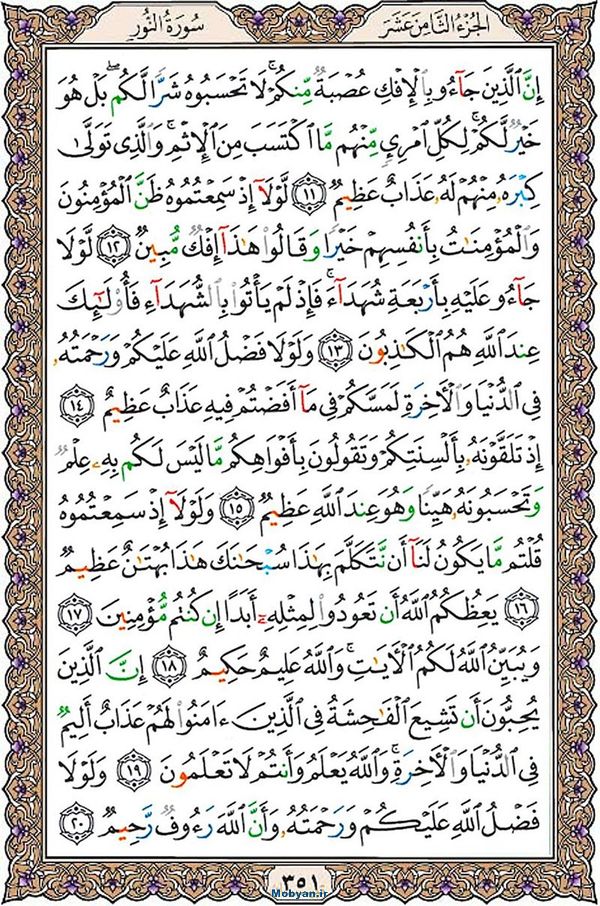 الجُزءُ الثَّامِنَ عَشَرَ سُورَةُ النُّورِ
إِنَّ ٱلَّذِينَ جَآءُو بِٱلْإِفْكِ عُصْبَةٌ مِّنكُمْ ۚ لَا تَحْسَبُوهُ شَرًّا لَّكُم ۖ بَلْ هُوَ
خَيْرٌ لَّكُمْ ۚ لِكُلِّ ٱمْرِئٍ مِّنْهُم مَّا ٱكْتَسَبَ مِنَ ٱلْإِثْمِ ۚ وَٱلَّذِى تَوَلَّىٰ
كِبْرَهُۥ مِنْهُمْ لَهُۥ عَذَابٌ عَظِيمٌ ١١ لَّوْلَآ إِذْ سَمِعْتُمُوهُ ظَنَّ ٱلْمُؤْمِنُونَ
وَٱلْمُؤْمِنَـٰتُ بِأَنفُسِهِمْ خَيْرًا وَقَالُوا۟ هَـٰذَآ إِفْكٌ مُّبِينٌ ١٢ لَّوْلَا
جَآءُو عَلَيْهِ بِأَرْبَعَةِ شُهَدَآءَ ۚ فَإِذْ لَمْ يَأْتُوا۟ بِٱلشُّهَدَآءِ فَأُو۟لَـٰٓئِكَ
عِندَ ٱللَّهِ هُمُ ٱلْكَـٰذِبُونَ ١٣ وَلَوْلَا فَضْلُ ٱللَّهِ عَلَيْكُمْ وَرَحْمَتُهُۥ
فِى ٱلدُّنْيَا وَٱلْـَٔاخِرَةِ لَمَسَّكُمْ فِى مَآ أَفَضْتُمْ فِيهِ عَذَابٌ عَظِيمٌ ١٤
إِذْ تَلَقَّوْنَهُۥ بِأَلْسِنَتِكُمْ وَتَقُولُونَ بِأَفْوَاهِكُم مَّا لَيْسَ لَكُم بِهِۦ عِلْمٌ
وَتَحْسَبُونَهُۥ هَيِّنًا وَهُوَ عِندَ ٱللَّهِ عَظِيمٌ ١٥ وَلَوْلَآ إِذْ سَمِعْتُمُوهُ
قُلْتُم مَّا يَكُونُ لَنَآ أَن نَّتَكَلَّمَ بِهَـٰذَا سُبْحَـٰنَكَ هَـٰذَا بُهْتَـٰنٌ عَظِيمٌ
١٦ يَعِظُكُمُ ٱللَّهُ أَن تَعُودُوا۟ لِمِثْلِهِۦٓ أَبَدًا إِن كُنتُم مُّؤْمِنِينَ ١٧
وَيُبَيِّنُ ٱللَّهُ لَكُمُ ٱلْـَٔايَـٰتِ ۚ وَٱللَّهُ عَلِيمٌ حَكِيمٌ ١٨ إِنَّ ٱلَّذِينَ
يُحِبُّونَ أَن تَشِيعَ ٱلْفَـٰحِشَةُ فِى ٱلَّذِينَ ءَامَنُوا۟ لَهُمْ عَذَابٌ أَلِيمٌ
فِى ٱلدُّنْيَا وَٱلْـَٔاخِرَةِ ۚ وَٱللَّهُ يَعْلَمُ وَأَنتُمْ لَا تَعْلَمُونَ ١٩ وَلَوْلَا
فَضْلُ ٱللَّهِ عَلَيْكُمْ وَرَحْمَتُهُۥ وَأَنَّ ٱللَّهَ رَءُوفٌ رَّحِيمٌ ٢٠
٣٥١
Mobyan.ir